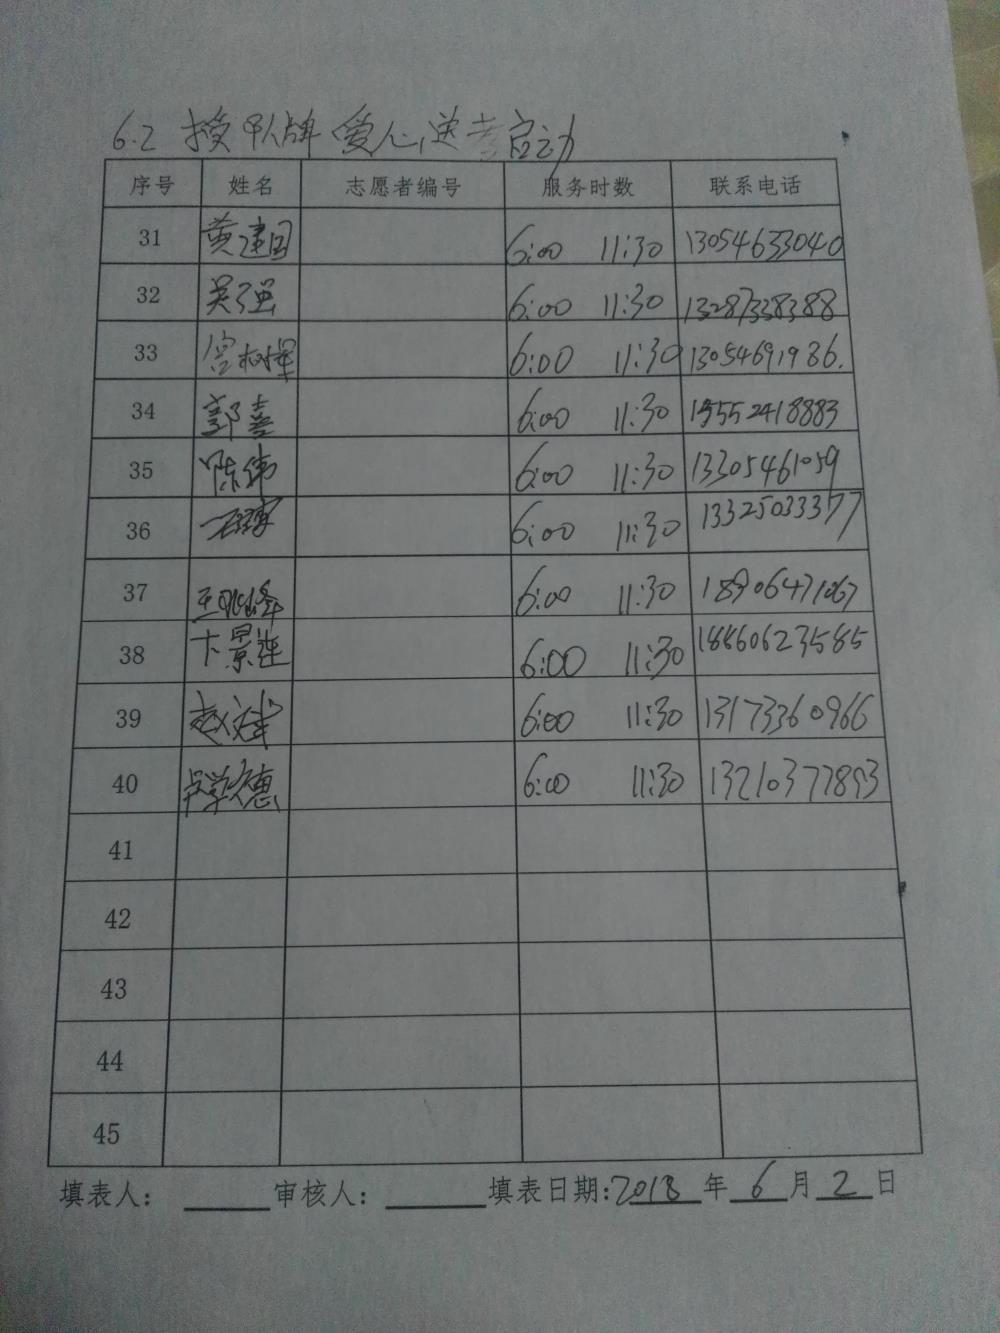 6.2 授队牌 爱心送考启动
序号 姓名 志愿者编号 服务时数 联系电话
31 黄建国 6:00 11:30 13054633040
32 吴强 6:00 11:30 13287338388
33 6:00 11:30 13054691986.
34 郭喜 6:00 11:30 15552418883
35 陈伟 6:00 11:30 13305461059
36 6:00 11:30 13325033377
37 6:00 11:30 18906471067
38 卞景连 6:00 11:30 18860623585
39 赵斌 6:00 11:30 13173360966
40 卢学德 6:00 11:30 13210377893
41
42
43
44
45
填表人: 审核人: 填表日期:2018 年 6 月 2 日